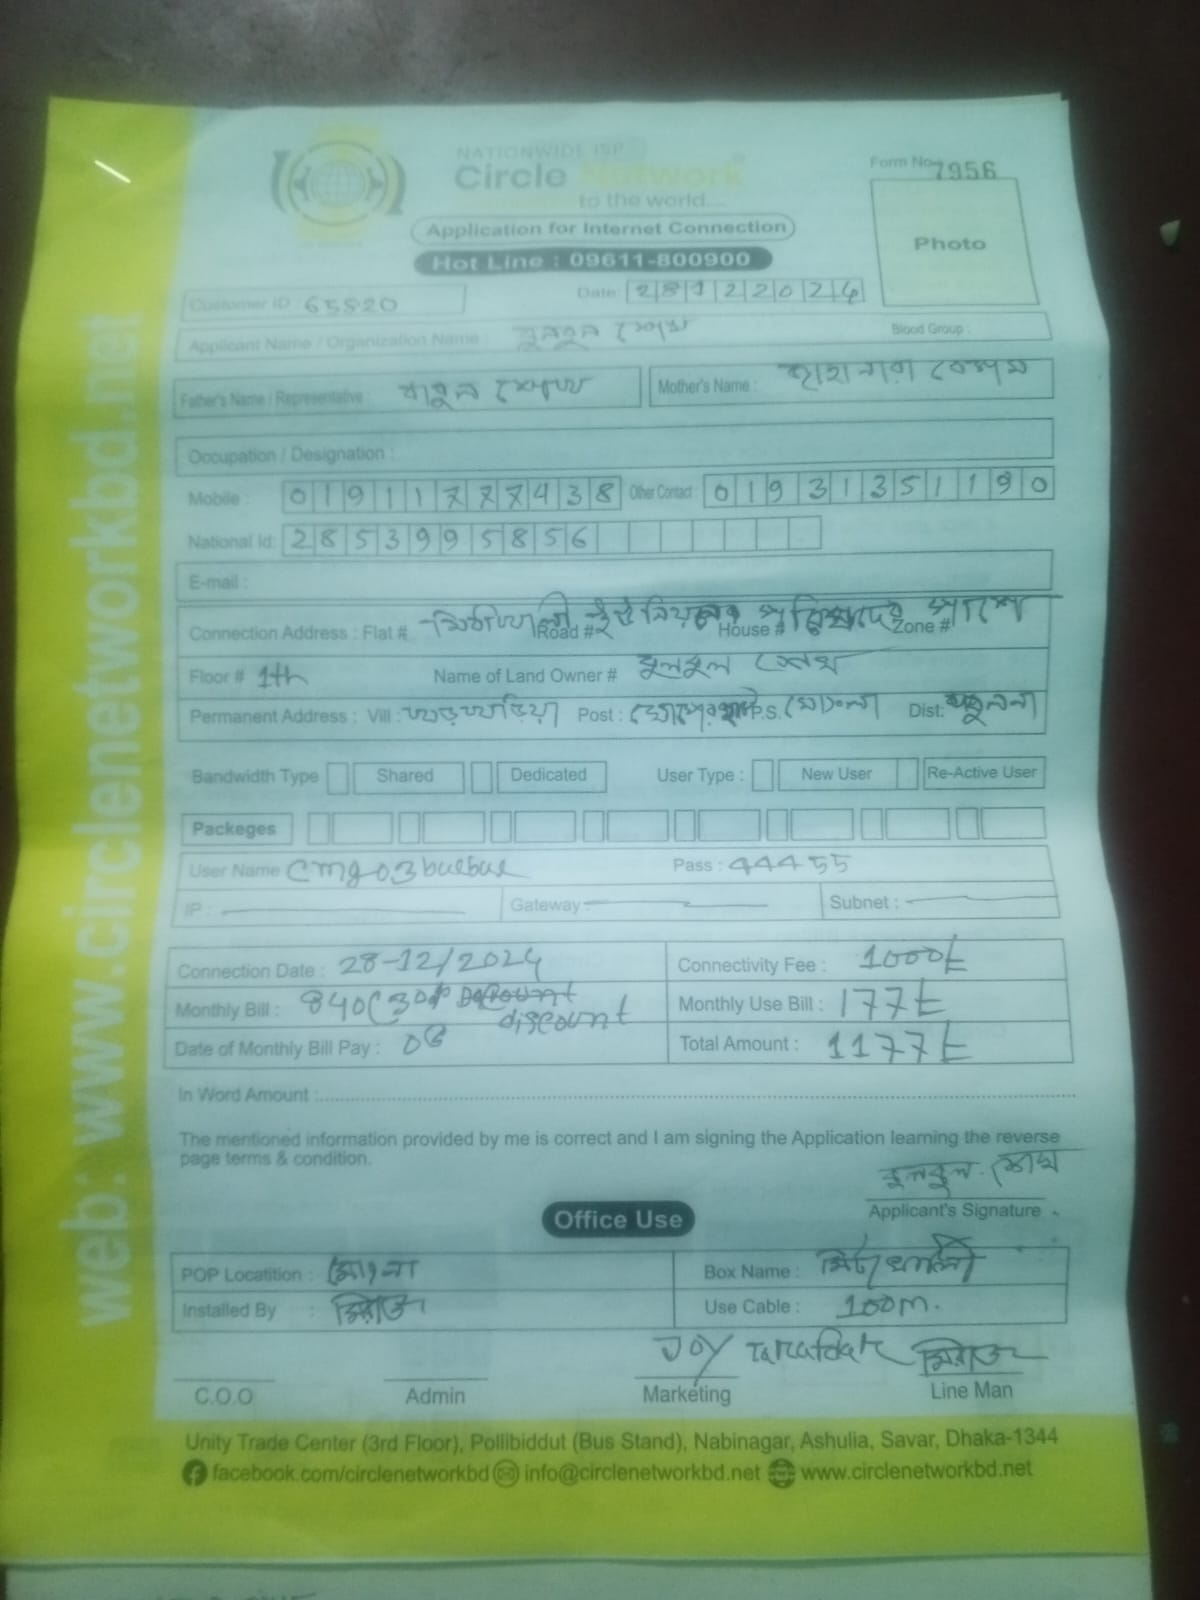 web: www.circlenetworkbd.net
NATIONWIDE ISP
Circle Network
to the world...
Form No. 7956
Application for Internet Connection
Photo
Hot Line : 09611-800900
Customer ID 65520 Date: 28122024
Applicant Name / Organization Name : বুলবুল শেখ Blood Group :
Father's Name / Representative : বাবুল শেখ Mother's Name : জাহানারা বেগম
Occupation / Designation :
Mobile : 01911777438 Other Contact : 01931351190
National Id: 2853995856
E-mail :
Connection Address : Flat # মিঠাখালী Road # ইউনিয়ন House # পরিষদের Zone # পাশে
Floor # 1th Name of Land Owner # বুলবুল শেখ
Permanent Address : Vill : Post : P.S. মোংলা Dist: খুলনা
Bandwidth Type Shared Dedicated User Type : New User Re-Active User
Packeges
User Name cmg03bulbul Pass : 44455
IP : Gateway : Subnet :
Connection Date : 28-12/2024 Connectivity Fee : 1000৳
Monthly Bill : 840( discount Monthly Use Bill : 177৳
Date of Monthly Bill Pay : 06 Total Amount : 1177৳
In Word Amount :
The mentioned information provided by me is correct and I am signing the Application learning the reverse
page terms & condition.
বুলবুল শেখ
Applicant's Signature
Office Use
POP Locatition : মোংলা Box Name : মিঠাখালী
Installed By : মিরাজ Use Cable : 100m.
Joy Tarafdar মিরাজ
C.O.O Admin Marketing Line Man
Unity Trade Center (3rd Floor), Pollibiddut (Bus Stand), Nabinagar, Ashulia, Savar, Dhaka-1344
facebook.com/circlenetworkbd info@circlenetworkbd.net www.circlenetworkbd.net